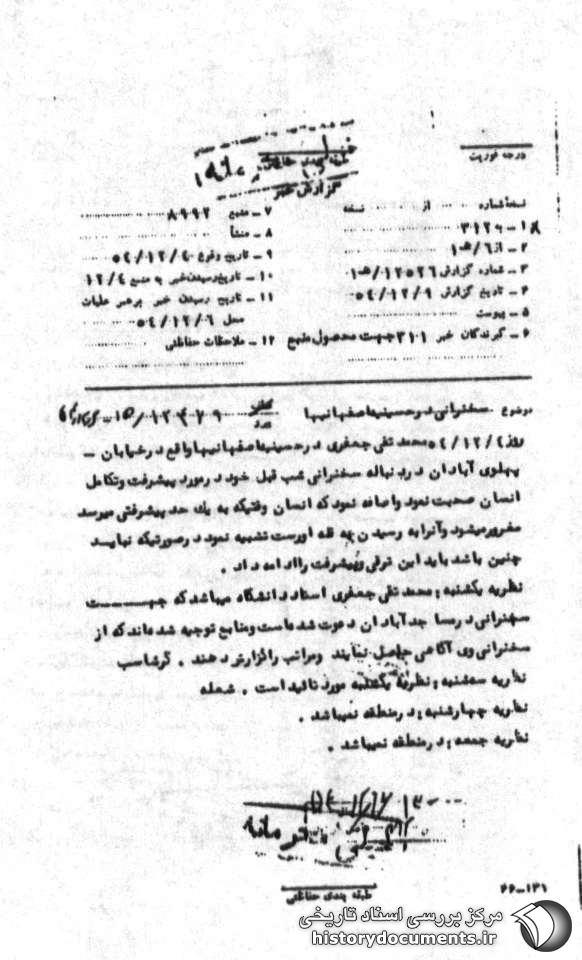 درجه فوریت
طبقه بندی حفاظتی
گزارش خبر
نسخه شماره ........ از ........ نسخه
۱ـ ۳۱۲۹
۲ـ از ۶/ه‍ ۱
۳ـ شماره گزارش ۱۲۵۲۶/ه‍ ۱
۴ـ تاریخ گزارش ۵۴/۱۲/۹
۵ـ پیوست
۶ـ گیرندگان خبر ۳۱۱ جهت محصول منبع
۷ـ منبع ۸۹۹۲
۸ـ منشأ
۹ـ تاریخ وقوع ۵۴/۱۲/۴
۱۰ـ تاریخ رسیدن خبر به منبع ۱۲/۴
۱۱ـ تاریخ رسیدن خبر برهبر عملیات
محل ۵۴/۱۲/۶
۱۲ـ ملاحظات حفاظتی
موضوع سخنرانی در حسینیه اصفهانیها
روز ۵۴/۱۲/۴ محمد تقی جعفری در حسینیه اصفهانیها واقع در خیابان ـ
پهلوی آبادان در دنباله سخنرانی شب قبل خود در مورد پیشرفت و تکامل
انسان صحبت نمود و اضافه نمود که انسان وقتیکه به یك حد پیشرفتی میرسد
مغرور میشود و آنرا به رسیدن به قله اورست تشبیه نمود در صورتیکه نباید
چنین باشد باید این ترقی و پیشرفت را ادامه داد .
نظریه یکشنبه : محمد تقی جعفری استاد دانشگاه میباشد که جهت
سخنرانی در مساجد آبادان دعوت شده است و منابع توجیه شده اند که از
سخنرانی وی آگاهی حاصل نمایند و مراتب را گزارش دهند . گرشاسب
نظریه سه شنبه : نظریه یکشنبه مورد تائید است . شعله
نظریه چهارشنبه : در منطقه نمیباشد .
نظریه جمعه : در منطقه نمیباشد .
طبقه بندی حفاظتی
۶۶ـ۱۳۱
مرکز بررسی اسناد تاریخی
historydocuments.ir